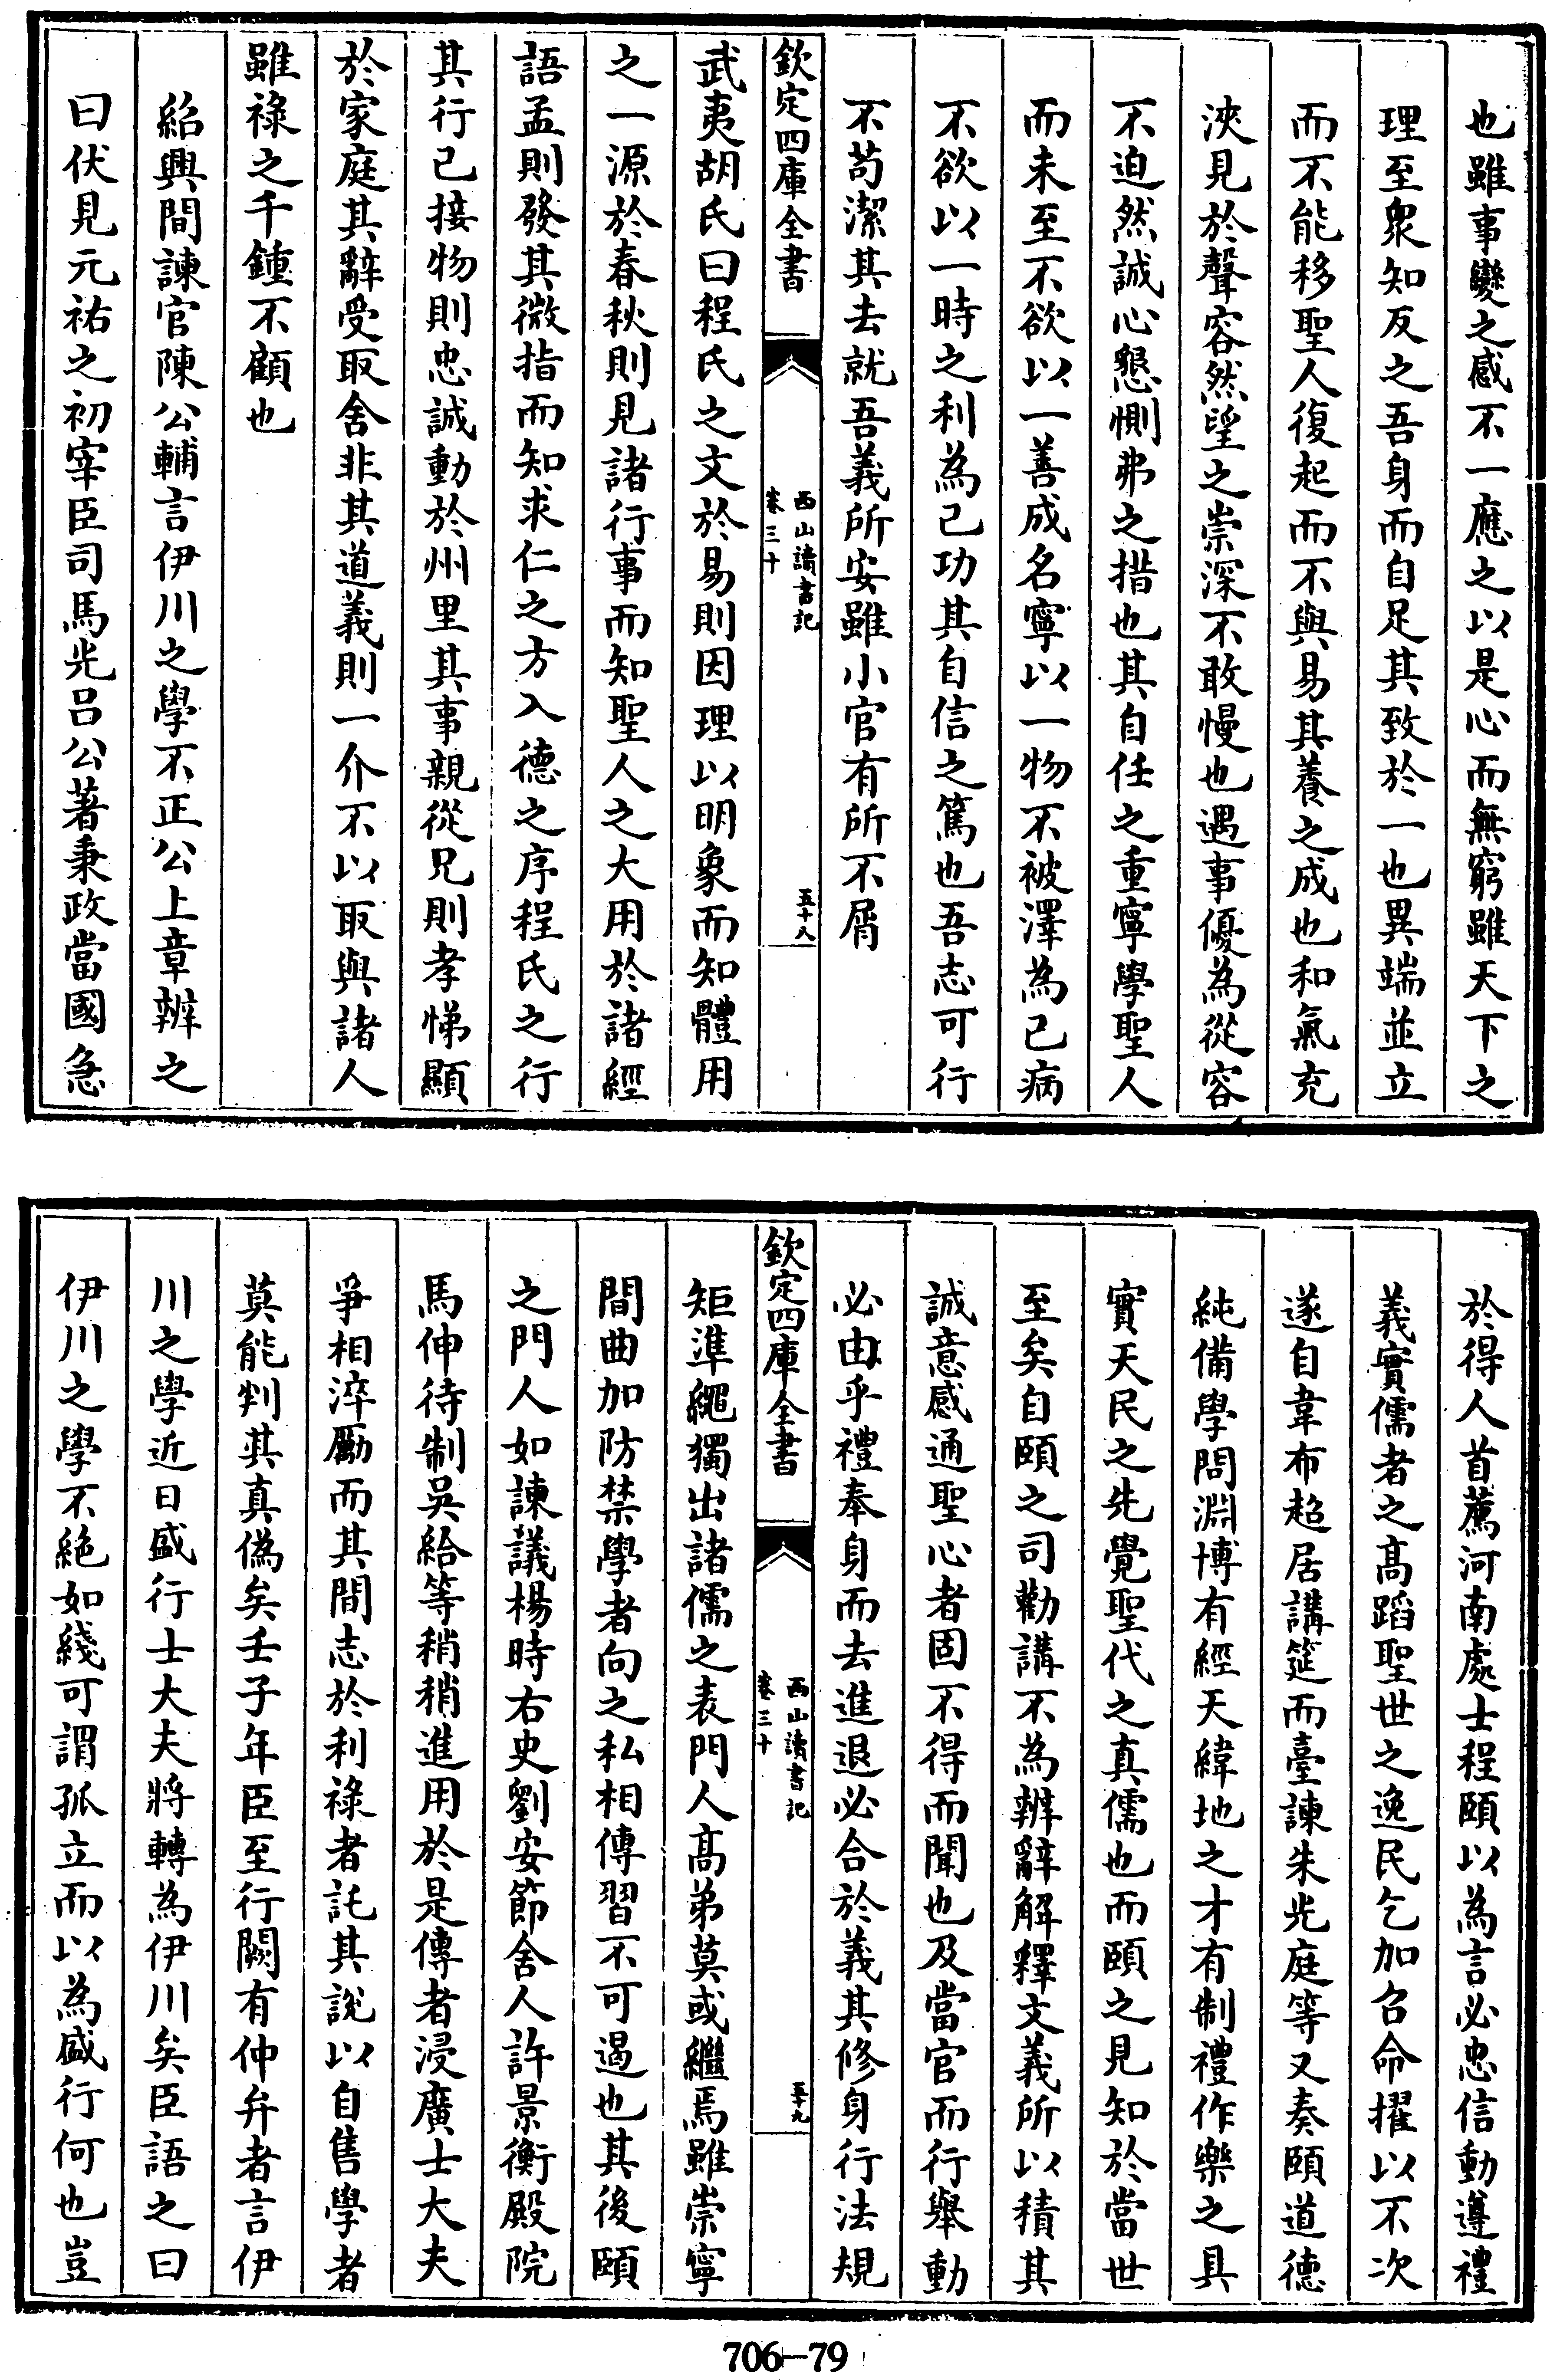 也雖事變之感不一應之以是心而無窮雖天下之
理至衆知反之吾身而自足其致於一也異端並立
而不能移聖人復起而不與易其養之成也和氣充
浹見於聲容然望之崇深不敢慢也遇事優為從容
不迫然誠心懇惻弗之措也其自任之重寧學聖人
而未至不欲以一善成名寧以一物不被澤為己病
不欲以一時之利為己功其自信之篤也吾志可行
不苟潔其去就吾義所安雖小官有所不屑
欽定四庫全書
西山讀書記
卷三十
五十八
武夷胡氏曰程氏之文於易則因理以明象而知體用
之一源於春秋則見諸行事而知聖人之大用於諸經
語孟則發其微指而知求仁之方入德之序程氏之行
其行己接物則忠誠動於州里其事親從兄則孝悌顯
於家庭其辭受取舍非其道義則一介不以取與諸人
雖祿之千鍾不顧也
紹興間諫官陳公輔言伊川之學不正公上章辨之
曰伏見元祐之初宰臣司馬光呂公著秉政當國急
於得人首薦河南處士程頤以為言必忠信動遵禮
義實儒者之高蹈聖世之逸民乞加召命擢以不次
遂自韋布超居講筵而臺諫朱光庭等又奏頤道德
純備學問淵博有經天緯地之才有制禮作樂之具
實天民之先覺聖代之真儒也而頤之見知於當世
至矣自頤之司勸講不為辨辭解釋文義所以積其
誠意感通聖心者固不得而聞也及當官而行舉動
必由乎禮奉身而去進退必合於義其修身行法規
欽定四庫全書
西山讀書記
卷三十
五十九
矩準繩獨出諸儒之表門人高弟莫或繼焉雖崇寧
間曲加防禁學者向之私相傳習不可遏也其後頤
之門人如諫議楊時右史劉安節舍人許景衡殿院
馬伸待制吳給等稍稍進用於是傳者浸廣士大夫
爭相淬勵而其間志於利祿者託其說以自售學者
莫能判其真偽矣壬子年臣至行闕有仲弁者言伊
川之學近日盛行士大夫將轉為伊川矣臣語之曰
伊川之學不絕如綫可謂孤立而以為盛行何也豈
706-79